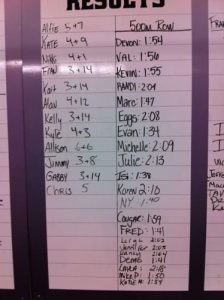 RESULTS
Alfie 5+7
KATE 4+9
NIKKI 4+1
FRAN 3+14
Kait 3+14
Alan 4+12
Kelly 3+14
Kyle 4+3
Allison 6+6
Jimmy 3+8
GABBY 3+14
CHRIS 5
500m Row
DEVON: 1:54
VAL: 1:56
KEVIN: 1:55
RANDI: 2:04
Marc: 1:47
Eggs: 2:08
Evan: 1:34
Michelle: 2:09
Julie: 2:13
Jen: 1:38
KAREN 2:10
NY 1:40
Cougar: 1:59
FRED: 1:41
Leigh 2:02
Jennifer 2:05
2:04
Demo 1:41
LAURA: 2:18
Mike P: 1:50
KATIE A: 1:59